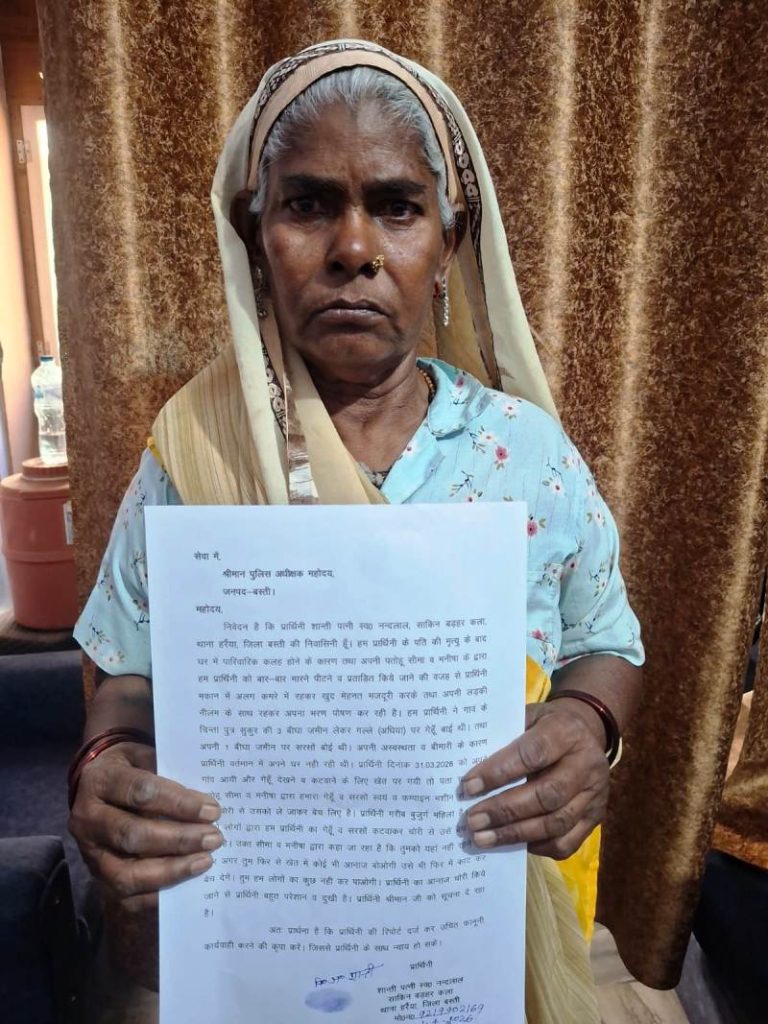 सेवा में,
श्रीमान पुलिस अधीक्षक महोदय,
जनपद–बस्ती।
महोदय,
निवेदन है कि प्रार्थिनी शान्ती पत्नी स्व0 नन्दलाल, साकिन बड़हर कला,
थाना हर्रैया, जिला बस्ती की निवासिनी हूँ। हम प्रार्थिनी के पति की मृत्यु के बाद
घर में पारिवारिक कलह होने के कारण तथा अपनी पतोहू सीमा व मनीषा के द्वारा
हम प्रार्थिनी को बार–बार मारने पीटने व प्रताड़ित किये जाने की वजह से प्रार्थिनी
मकान में अलग कमरे में रहकर खुद मेहनत मजदूरी करके तथा अपनी लड़की
नीलम के साथ रहकर अपना भरण पोषण कर रही है। हम प्रार्थिनी ने गांव के
चिन्ता पुत्र सुकुर की 3 बीघा जमीन लेकर गल्ले (अधिया) पर गेहूँ बोई थी। तथा
अपनी 1 बीघा जमीन पर सरसों बोई थी। अपनी अस्वस्थता व बीमारी के कारण
प्रार्थिनी वर्तमान में अपने घर नही रही थी। प्रार्थिनी दिनांक 31.03.2026 को अपने
गांव आयी और गेहूँ देखने व कटवाने के लिए खेत पर गयी तो पता
सीमा व मनीषा द्वारा हमारा गेहूँ व सरसों स्वयं व कम्पाइन मशीन
चोरी से उसको ले जाकर बेच लिए है। प्रार्थिनी गरीब बुजुर्ग महिला
लोगों द्वारा हम प्रार्थिनी का गेहूँ व सरसों कटवाकर चोरी से उसे
है। उक्त सीमा व मनीषा द्वारा कहा जा रहा है कि तुमको यहां नही
अगर तुम फिर से खेत में कोई भी आनाज बोओगी उसे भी फिर में काट कर
बेच देगें। तुम हम लोगों का कुछ नही कर पाओगी। प्रार्थिनी का आनाज चोरी किये
जाने से प्रार्थिनी बहुत परेशान व दुखी है। प्रार्थिनी श्रीमान जी को सूचना दे रहा
है।
अतः प्रार्थना है कि प्रार्थिनी की रिपोर्ट दर्ज कर उचित कानूनी
कार्यवाही करने की कृपा करें। जिससे प्रार्थिनी के साथ न्याय हो सके।
प्रार्थिनी
शान्ती
शान्ती पत्नी स्व0 नन्दलाल
साकिन बड़हर कला
थाना हर्रैया, जिला बस्ती
मो0न0 9219902169